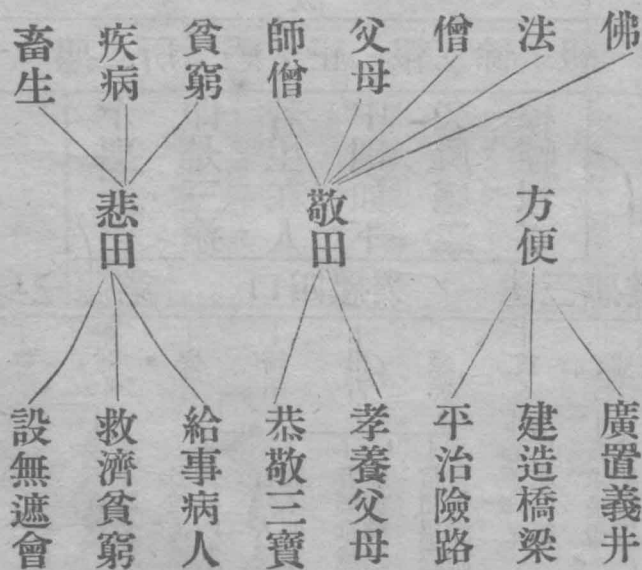 佛
法
僧
父母
師僧
貧窮
疾病
畜生
方便
敬田
悲田
廣置義井
建造橋梁
平治險路
孝養父母
恭敬三寶
給事病人
救濟貧窮
設無遮會